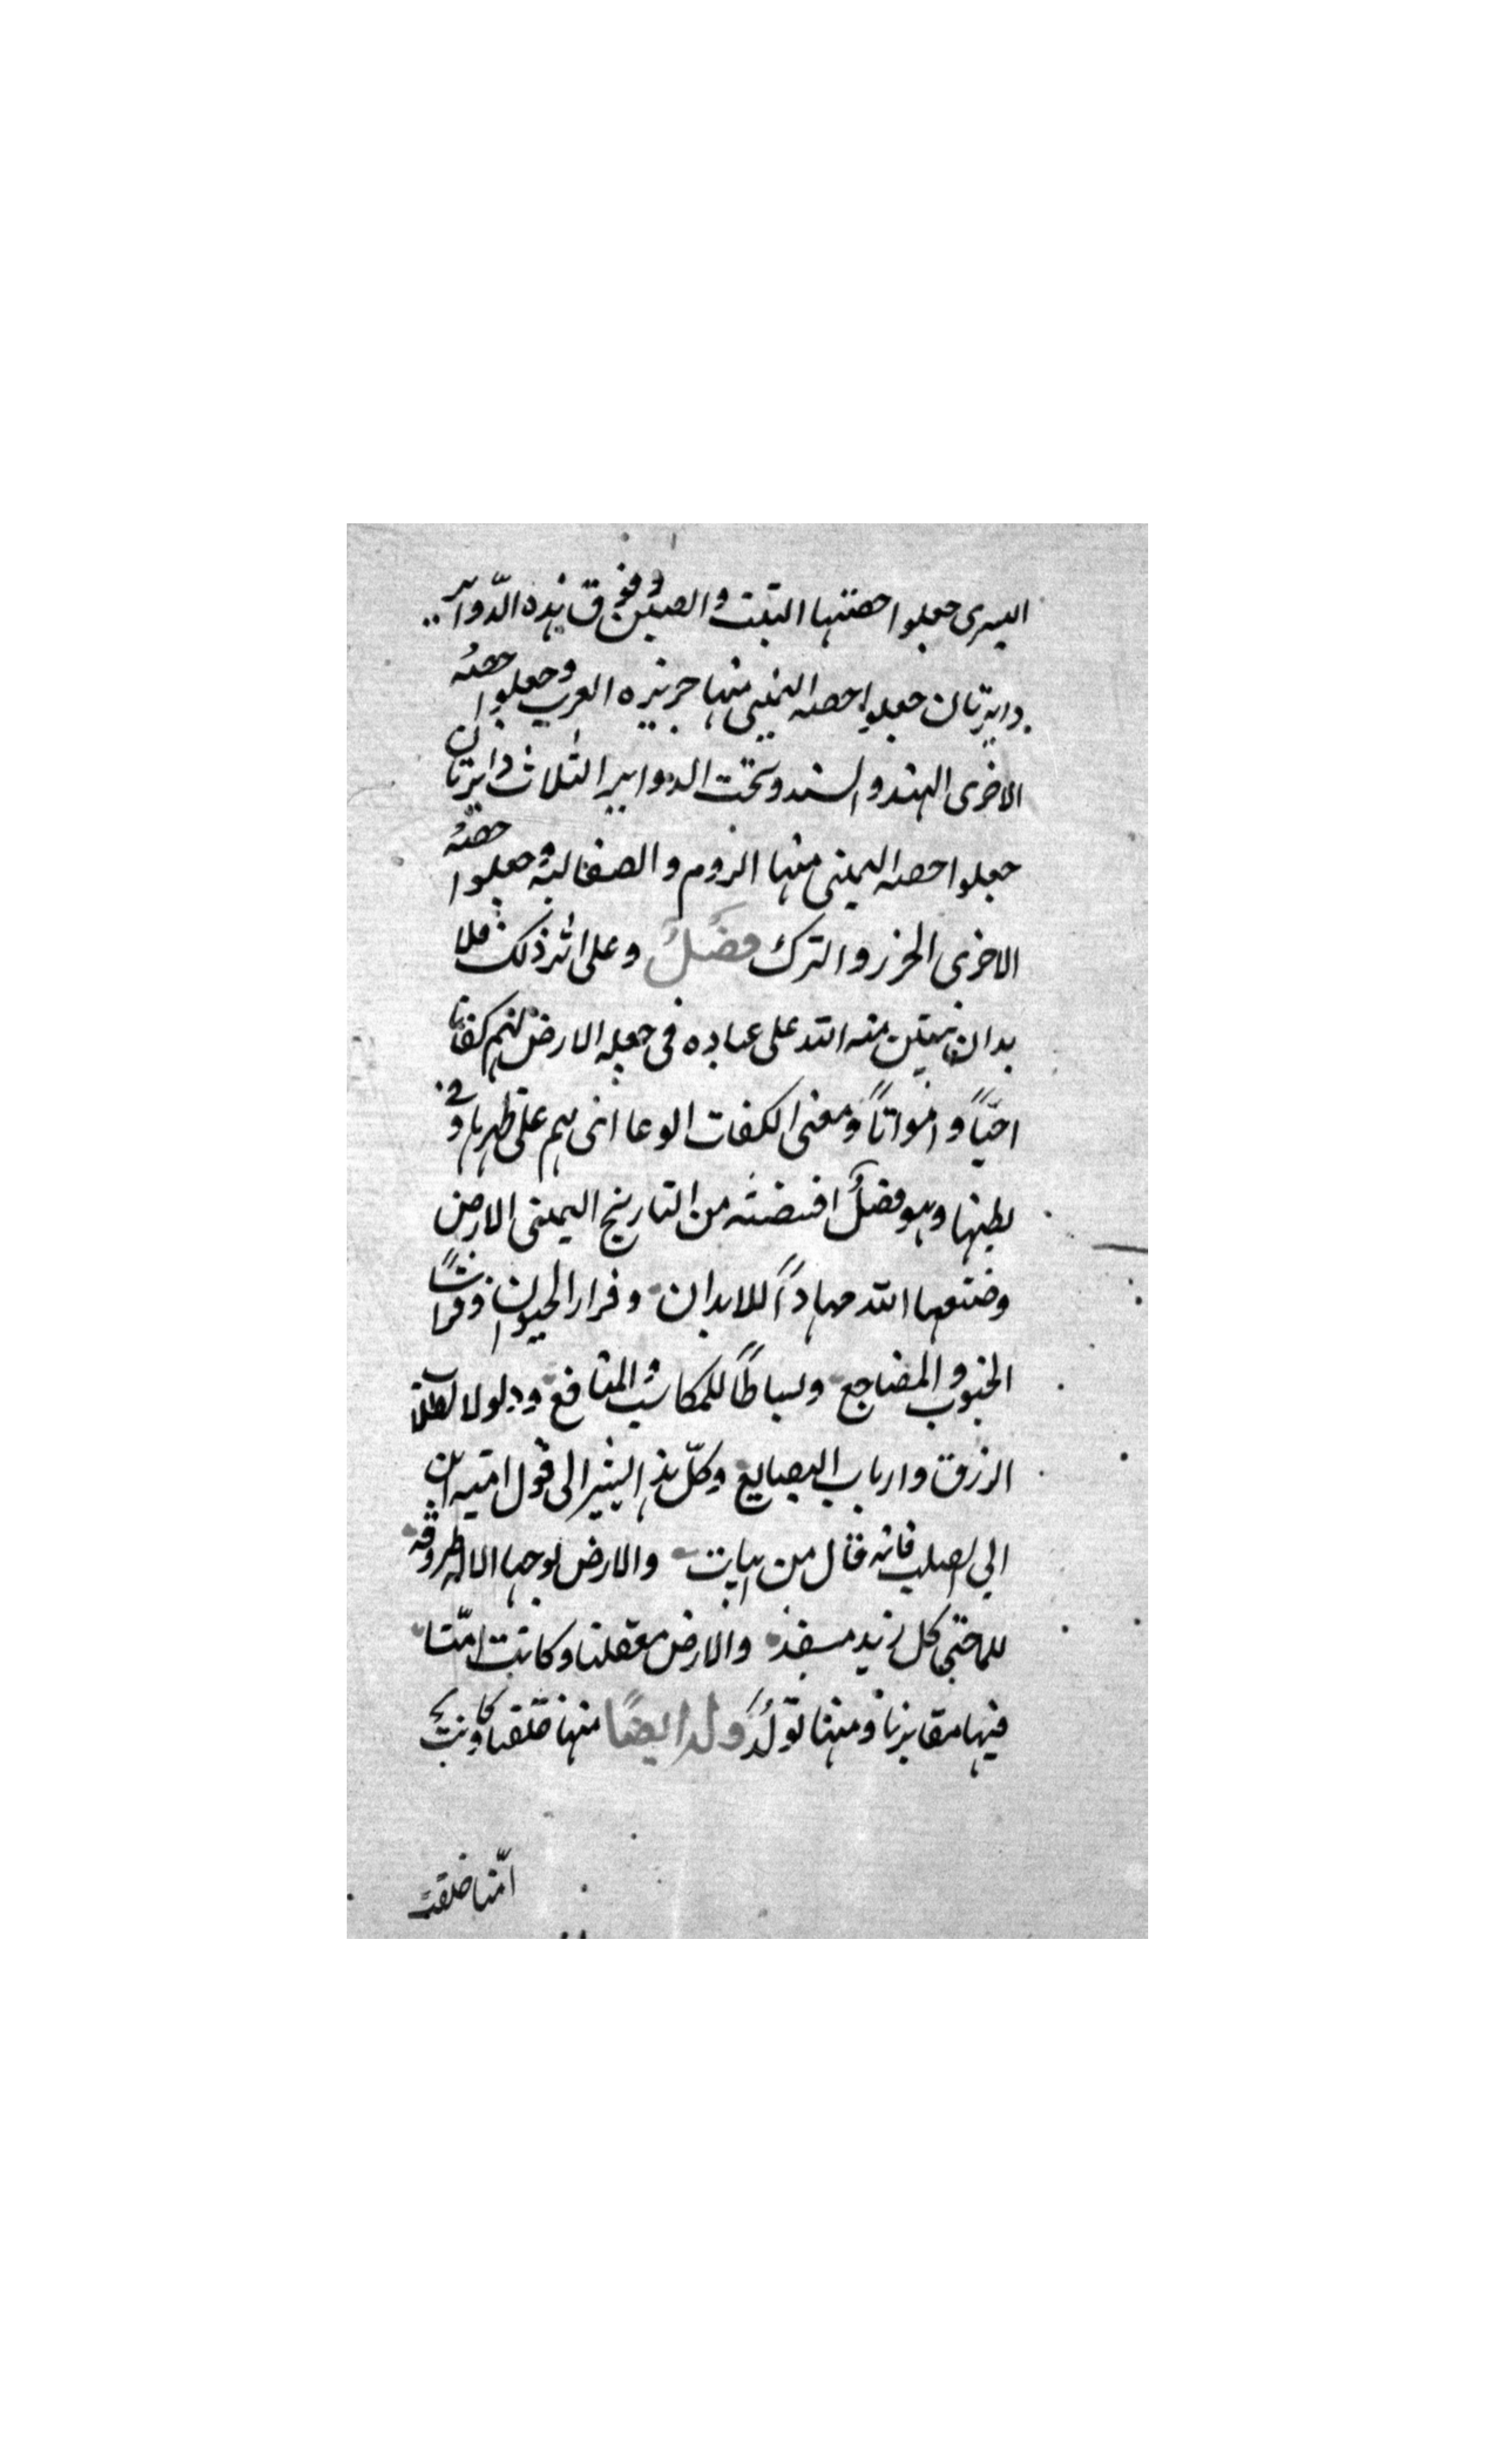 اليسرى جعلوا حصتها التبت والصين وفوق هذه الدّواير
دايرتان جعلوا حصه اليمنى منها جزيره العرب وجعلوا حصه
الاخرى الهند والسند وتحت الدواير الثلاث دايرتان
جعلوا حصه اليمنى منها الروم والصقالبة وجعلوا حصّة
الاخرى الخزر والترك فصَلٌ وعلى اثر ذلك فلا
بد ان نبيّن منه الله على عباده فى جعله الارض لهم كفاتا
احيّاً وامواتاً ومعنى الكفات الوعا اى هم على ظهرها وفي
بطنها وهو فصلٌ اقتضبته من التاريخ اليمينى الارض
وضعها الله مهاداً للابدان وقرار الحيوان وفراشًا
الجنوب والمضاجع وبساطاً للمكاسب والمنافع وذلولا لطلاب
الرزق وارباب البضايع وكلّ هذا يشير الى قول اميه ابن
ابي الصلب فانه قال من ابيات والارض نوجها الاله طروقه
للماحتى كل زند مسفد والارض معقلنا وكانت امّنا
فيها مقابرنا ومنها نولَدُ وله ايضًا منها خلقنا وكانت
امّنا خلقت